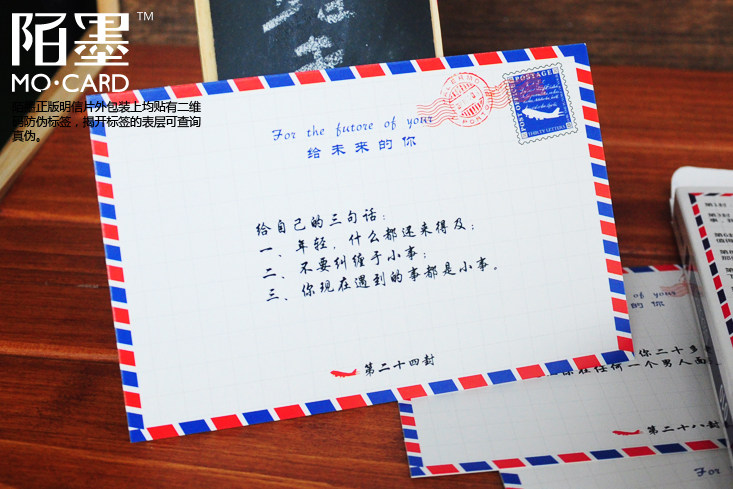 陌墨™
MO·CARD
陌墨正版明信片外包装上均贴有二维
码防伪标签，揭开标签的表层可查询
真伪。
For the futore of your
给未来的你
POSTAGE
THIRTY LETTERS
给自己的三句话：
一、年轻，什么都还来得及；
二、不要纠缠于小事；
三、你现在遇到的事都是小事。
第二十四封
of your
的你
你二十多
在任何一个男人面
第二十八封
For